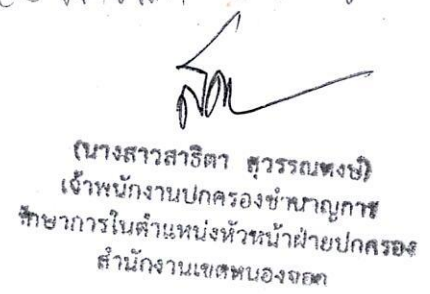 (นางสาวสาธิตา สุวรรณหงษ์)
เจ้าพนักงานปกครองชำนาญการ
รักษาการในตำแหน่งหัวหน้าฝ่ายปกครอง
สำนักงานเขตหนองจอก